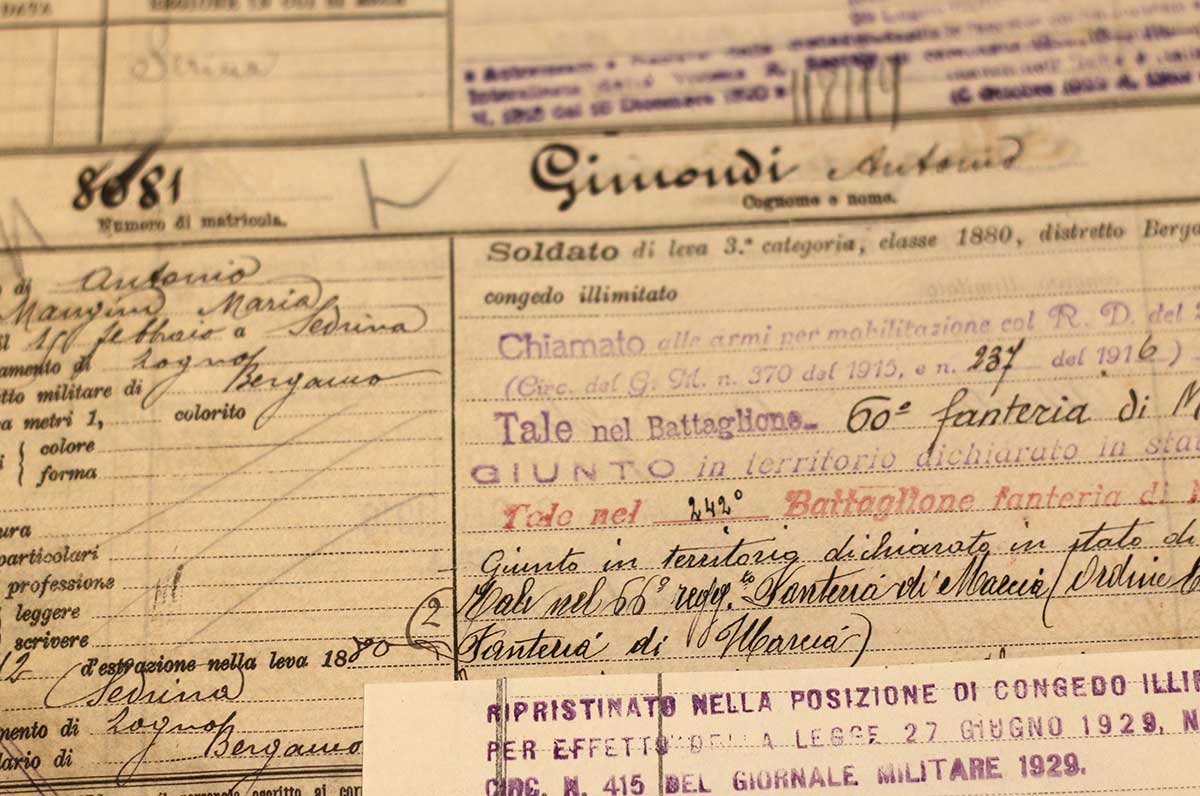 DATA
Serina
N. 1915 del 16 Dicembre 1920
8681
Numero di matricola.
Gimondi Antonio
Cognome e nome.
di Antonio
Mangini Maria
febbraio a Sedrina
amento di Zogno
etto militare di Bergamo
a metri 1, colorito
colore
forma
ura
particolari
professione
leggere
scrivere
12 d'estrazione nella leva 1880
Sedrina
mento di Zogno
dario di Bergamo
Soldato di leva 3.ª categoria, classe 1880, distretto Berga
congedo illimitato
Chiamato alle armi per mobilitazione col R. D. del
(Circ. del G. M. n. 370 del 1915, e n. 237 del 1916)
Tale nel Battaglione 60º fanteria di M
GIUNTO in territorio dichiarato in sta
Tale nel 242º Battaglione fanteria di
Giunto in territorio dichiarato in stato di
(2 Tale nel 66º regg.to Fanteria di Marcia (Ordine
Fanteria di Marcia)
RIPRISTINATO NELLA POSIZIONE DI CONGEDO ILLIM
PER EFFETTO DELLA LEGGE 27 GIUGNO 1929, N
CIRC. N. 415 DEL GIORNALE MILITARE 1929.